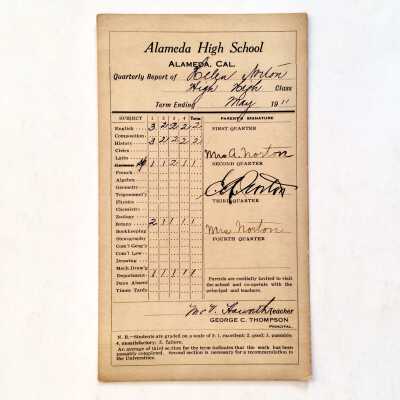 Alameda High School
ALAMEDA, CAL.
Quarterly Report of Helen Norton
High High Class
Term Ending May 19 11
SUBJECT 1 2 3 4 Term PARENT'S SIGNATURE
English 3 2 2 2 2
Composition FIRST QUARTER
History 3 2 2 2 2
Civics
Latin Mrs A. Norton
German 1 1 2 1 1 SECOND QUARTER
French
Algebra
Geometry Norton
Trigonomet'y
Physics THIRD QUARTER
Chemistry
Zoology
Botany 2 1 1 1 1 Mrs Norton
Bookkeeping
Stenography FOURTH QUARTER
Com'l Geog'y
Com'l Law
Drawing
Mech. Draw'g
Deportment 1 1 1 1 1 Parents are cordially invited to visit
Days Absent the school and co-operate with the
Times Tardy principal and teachers.
Teacher
GEORGE C. THOMPSON
PRINCIPAL.
N. B.—Students are graded on a scale of 5: 1. excellent; 2. good; 3. passable;
4. unsatisfactory; 5. failure.
An average of third section for the term indicates that the work has been
passably completed. Second section is necessary for a recommendation to
the Universities.